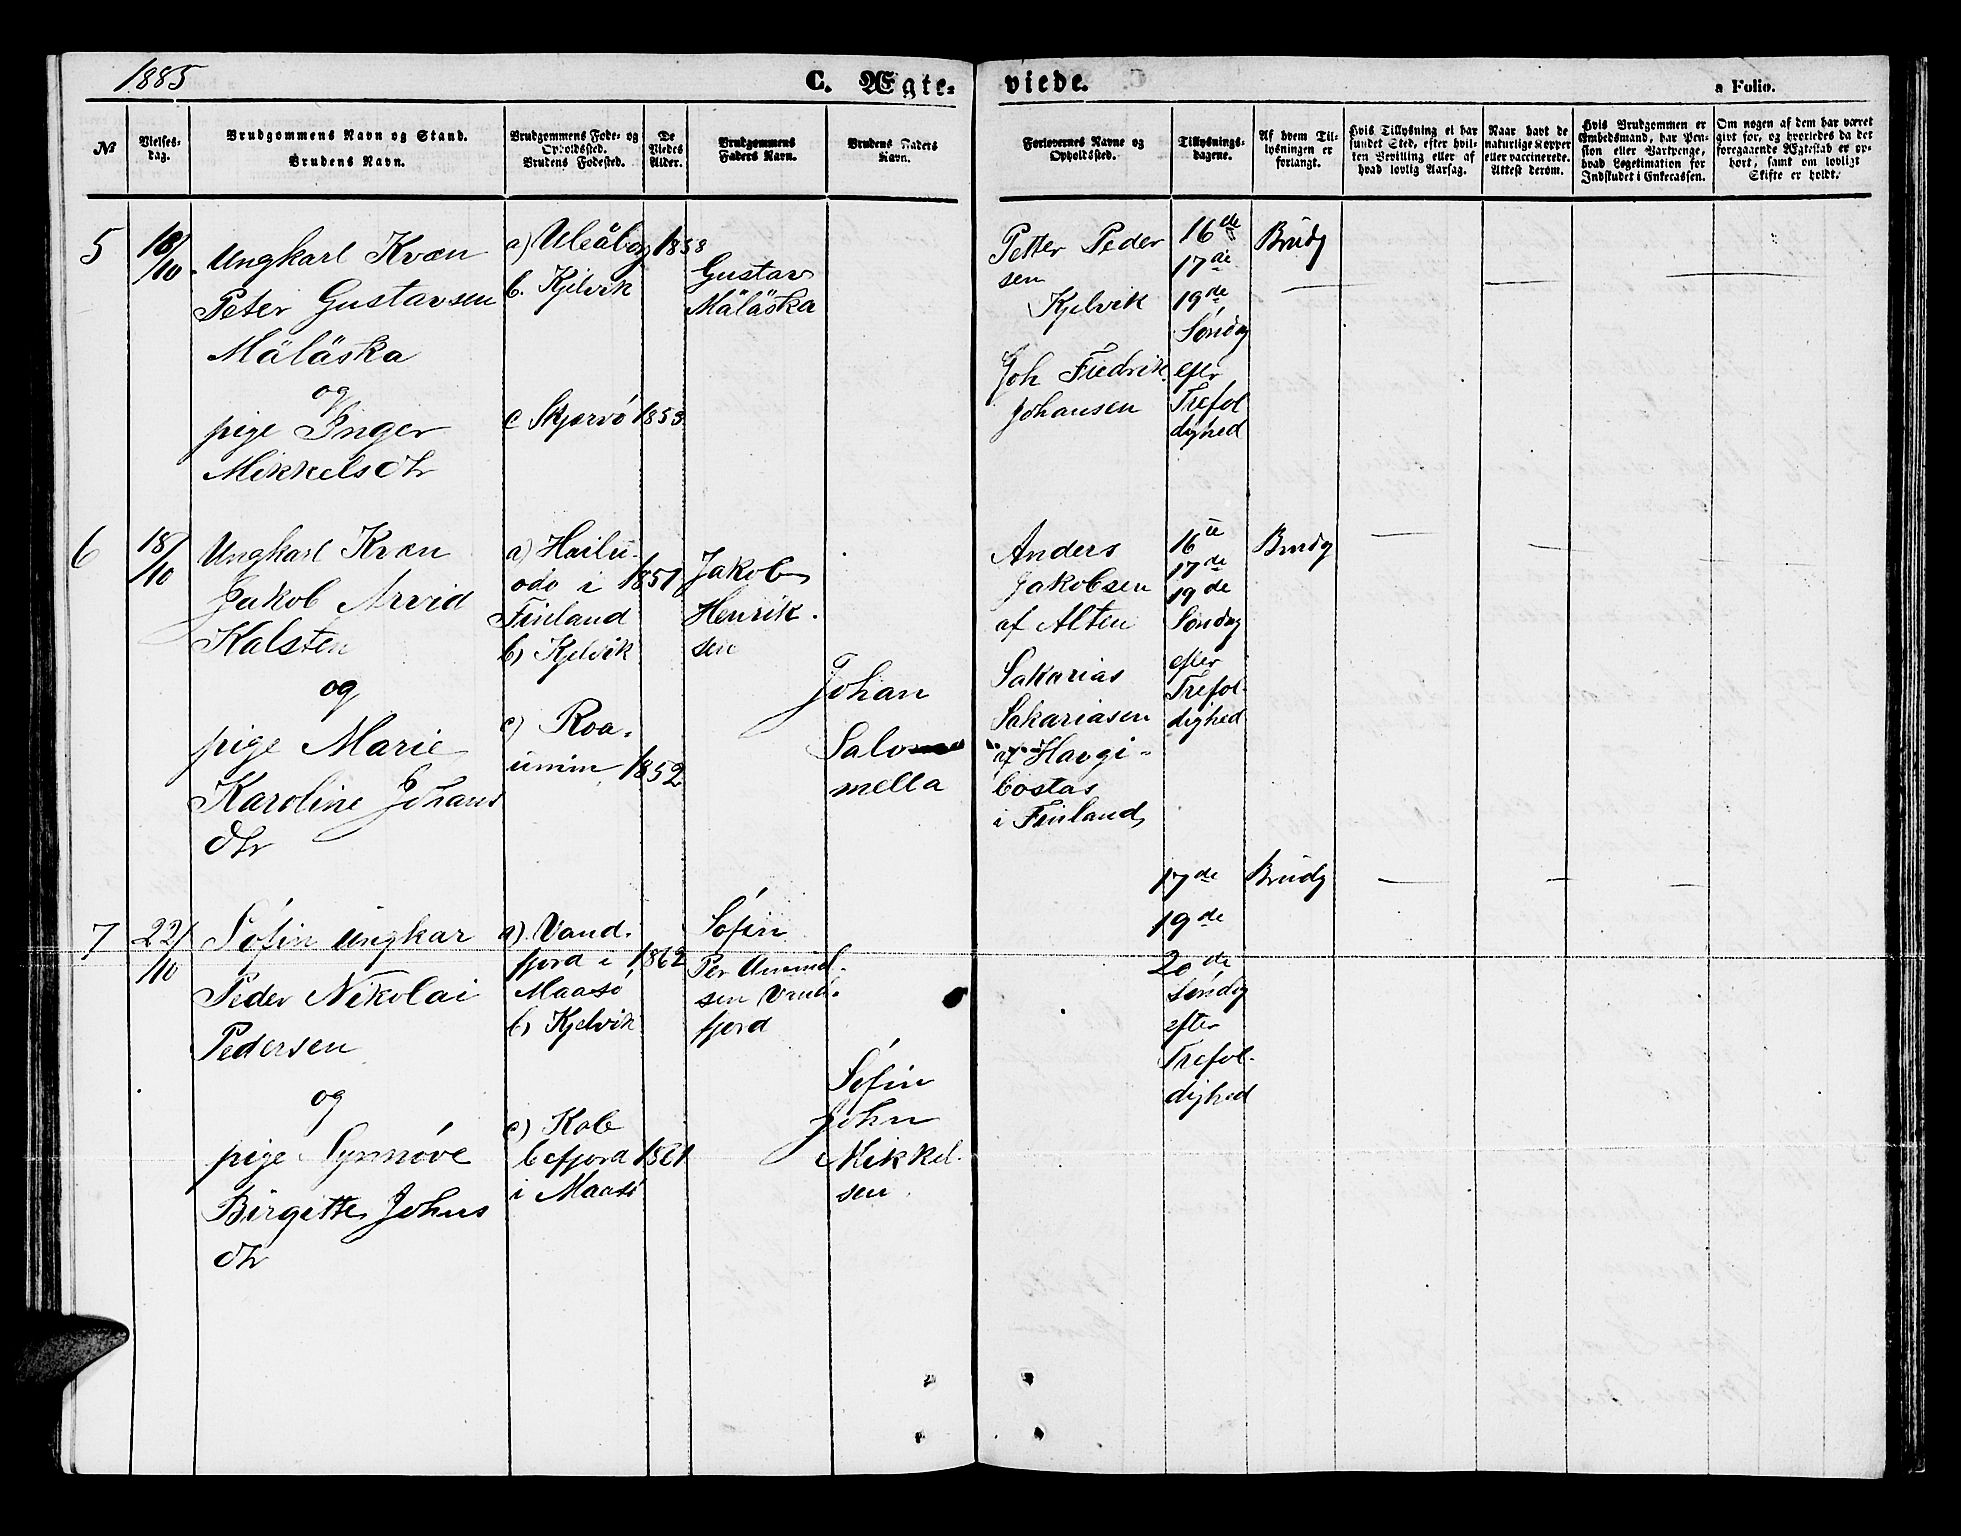 1885
C. Ægte-
viede.
a Folio.
№
Vielses-
dag.
Brudgommens Navn og Stand.
Brudens Navn.
Brudgommens Føde- og
Opholdssted.
Brudens Fødested.
De
Viedes
Alder.
Brudgommens
Faders Navn.
Brudens Faders
Navn.
Forlovernes Navne og
Opholdssted.
Tillysnings-
dagene.
Af hvem Til-
lysningen er
forlangt.
Hvis Tillysning ei har
fundet Sted, efter hvil-
ken Bevilling eller af
hvad lovlig Aarsag.
Naar havt de
naturlige Kopper
eller vaccinerede.
Attest derom.
Hvis Brudgommen er
Embedsmand, har Pen-
sion eller Vartpenge,
hvad Legitimation for
Indskudet i Enkecassen.
Om nogen af dem har været
givt før, og hvorledes da det
foregaaende Ægteskab er op-
hørt, samt om lovligt
Skifte er holdt.
5
18/10
Ungkarl Kvæn
Peter Gustavsen
Mäläska
og
pige Inger
Mikkelsdtr
a) Uleåborg
b. Kjelvik
c Skjervø
1858
1853
Gustav
Mäläska
Petter Peder
sen
Kjelvik
Joh Fredrik
Johansen
16de
17de
19de
Søndag
efter
Trefol
dighed
Brudg
6
18/10
Ungkarl Kvæn
Jakob Arvid
Kalsten
og
pige Marie
Karoline Johans
dtr
a) Hailu-
odo i
Finland
b) Kjelvik
c) Roa-
1851
1852
Jakob
Henrik-
sen
Johan
Salo
mella
Anders
Jakobsen
af Alten
Sakarias
Sakariasen
af Havgi-
bostas
i Finland
16de
17de
19de
Søndag
efter
Trefol-
dighed
Brudg
7
22/10
Søfin ungkar
Peder Nikolai
Pedersen
og
pige Synnøve
Birgitte Johns
dtr
a) Vand-
fjord i
Maasø
b) Kjelvik
c) Kob
befjord
i Maasø
1862
1861
Søfin
Per Ammel-
sen Vand-
fjord
Søfin
John
Mikkel-
sen
17de
19de
20de
Søndag
efter
Trefol-
dighed
Brudg